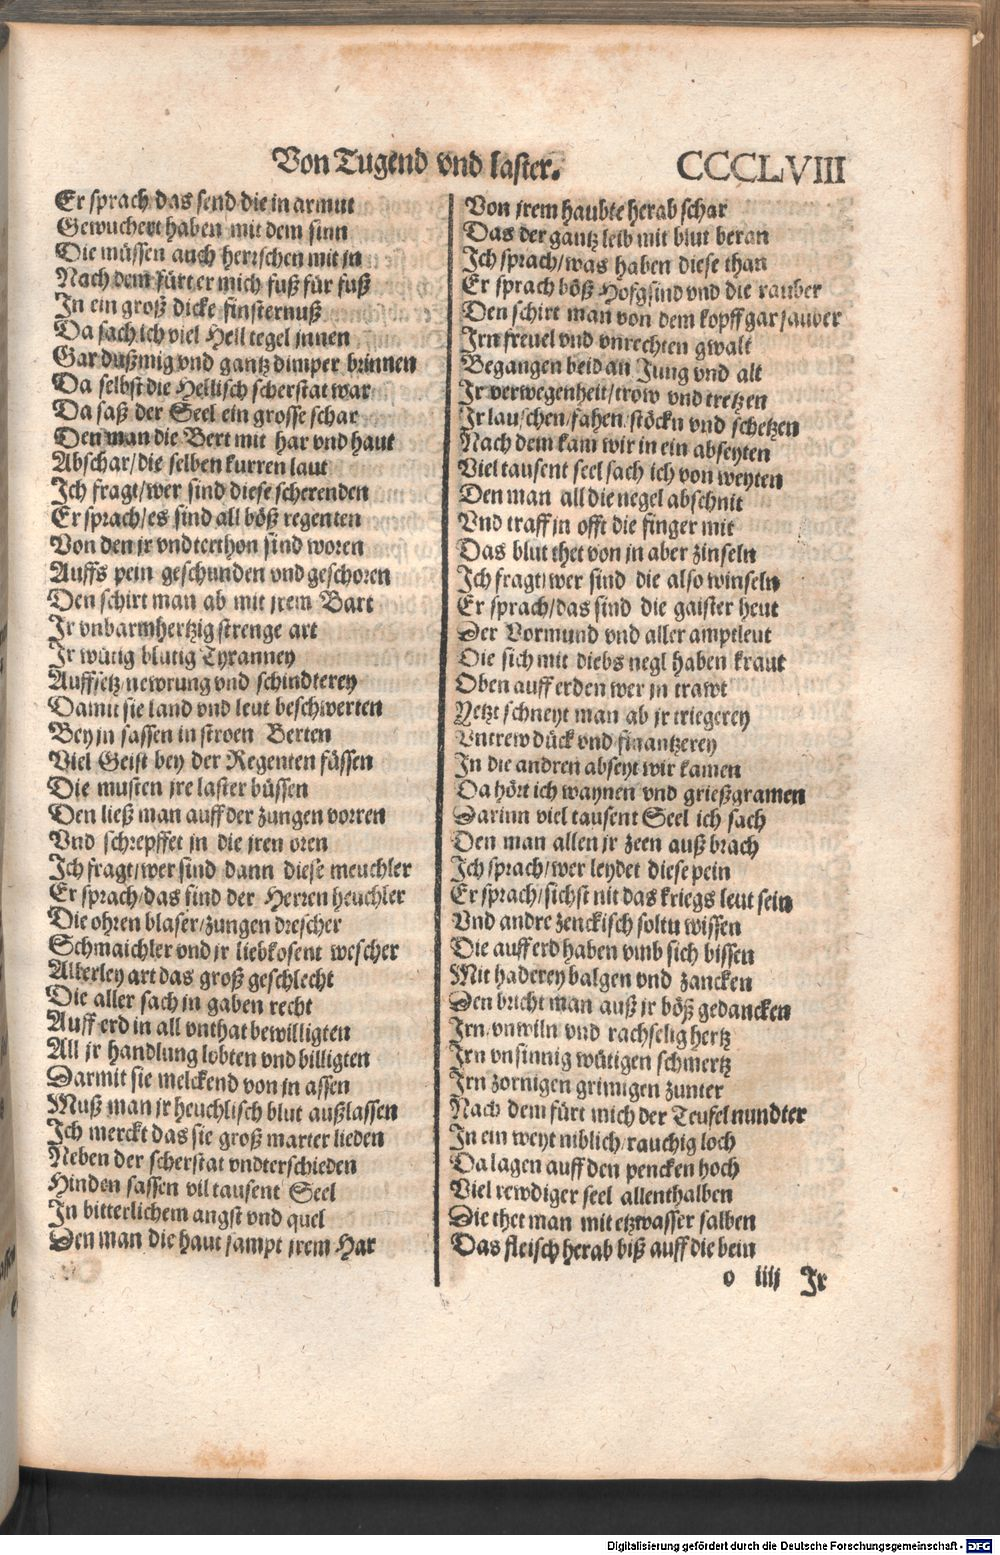 Von Tugend vnd laster. CCCLVIII
Er sprach das send die in armut
Gewuchert haben mit dem sinn
Die müssen auch herrschen mit jn
Nach dem fürt er mich fuß für fuß
In ein groß dicke finsternuß
Da sach ich viel Hell tegel jnnen
Gar dußmig vnd gantz dimper brinnen
Da selbst die Hellisch scherstat war
Da saß der Seel ein grosse schar
Den man die Bert mit har vnd haut
Abschar/die selben kurren laut
Ich fragt/wer sind diese scherenden
Er sprach/es sind all böß regenten
Von den jr vndterthon sind woren
Auffs pein geschunden vnd geschoren
Den schirt man ab mit jrem Bart
Ir vnbarmhertzig strenge art
Ir wütig blutig Tyranney
Auffsetz newrung vnd schindterey
Damit sie land vnd leut beschwerten
Bey jn sassen in stroen Berten
Viel Geist bey der Regenten füssen
Die musten jre laster büssen
Den ließ man auff der zungen vorren
Vnd schrepffet in die jren oren
Ich fragt/wer sind dann diese meuchler
Er sprach/das sind der Herren heuchler
Die ohren blaser/zungen drescher
Schmaichler vnd jr liebkosent wescher
Allerley art das groß geschlecht
Die aller sach jn gaben recht
Auff erd in all vnthat bewilligten
All jr handlung lobten vnd billigten
Darmit sie melckend von jn assen
Muß man jr heuchlisch blut außlassen
Ich merckt das sie groß marter lieden
Neben der scherstat vndterschieden
Hinden sassen vil tausent Seel
In bitterlichem angst vnd quel
Den man die haut sampt jrem Har
Von jrem haubte herab schar
Das der gantz leib mit blut beran
Ich sprach/was haben diese than
Er sprach böß Hofgsind vnd die rauber
Den schirt man von dem kopff gar sauber
Irn freuel vnd vnrechten gwalt
Begangen beid an Jung vnd alt
Ir verwegenheit/trow vnd tretzen
Ir lauschen/fahen/stöckn vnd schetzen
Nach dem kam wir in ein abseyten
Viel tausent seel sach ich von weyten
Den man all die negel abschnit
Vnd traff jn offt die finger mit
Das blut thet von jn aber zinseln
Ich fragt/wer sind die also winseln
Er sprach/das sind die gaister heut
Der Vormund vnd aller amptleut
Die sich mit diebs negl haben kraut
Oben auff erden wer jn trawt
Yetzt schneyt man ab jr triegerey
Vntrew dück vnd finantzerey
In die andren abseyt wir kamen
Da hört ich waynen vnd grießgramen
Darinn viel tausent Seel ich sach
Den man allen jr zeen auß brach
Ich sprach/wer leydet diese pein
Er sprach/sichst nit das kriegs leut sein
Vnd andre zenckisch soltu wissen
Die auff erd haben vmb sich bissen
Mit haderey balgen vnd zancken
Den bricht man auß jr böß gedancken
Irn vnwiln vnd rachselig hertz
Irn vnsinnig wütigen schmertz
Irn zornigen grimigen zunter
Nach dem fürt mich der Teufel nundter
In ein weyt niblich/rauchig loch
Da lagen auff den pencken hoch
Viel rewdiger seel allenthalben
Die thet man mit etzwasser salben
Das fleisch herab biß auff die bein
o iiij Ir
Digitalisierung gefördert durch die Deutsche Forschungsgemeinschaft - DFG